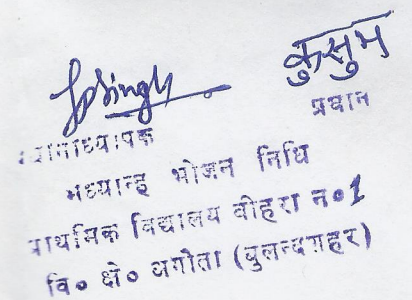 JPSingh कुसुम
प्रधानाध्यापक प्रधान
मध्यान्ह भोजन निधि
प्राथमिक विद्यालय वीहरा न०1
वि० क्षे० अगोता (बुलन्दशहर)